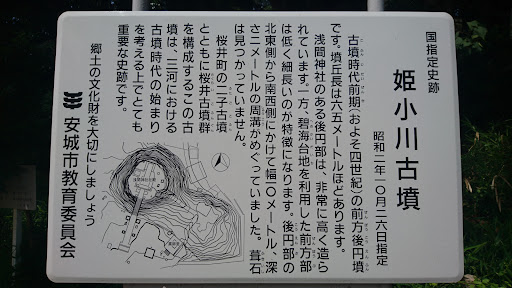 国指定史跡
姫小川古墳
昭和二年一〇月二六日指定
古墳時代前期(およそ四世紀)の前方後円墳
です。墳丘長は六五メートルほどあります。
浅間神社のある後円部は、非常に高く造ら
れています。一方、碧海台地を利用した前方部
は低く細長いのが特徴になります。後円部の
北東側から南西側にかけて幅一〇メートル、深
さ二メートルの周溝がめぐっていました。葺石
は見つかっていません。
桜井町の二子古墳
とともに桜井古墳群
を構成するこの古
墳は、三河における
古墳時代の始まり
を考える上でとても
重要な史跡です。
郷土の文化財を大切にしましょう
安城市教育委員会